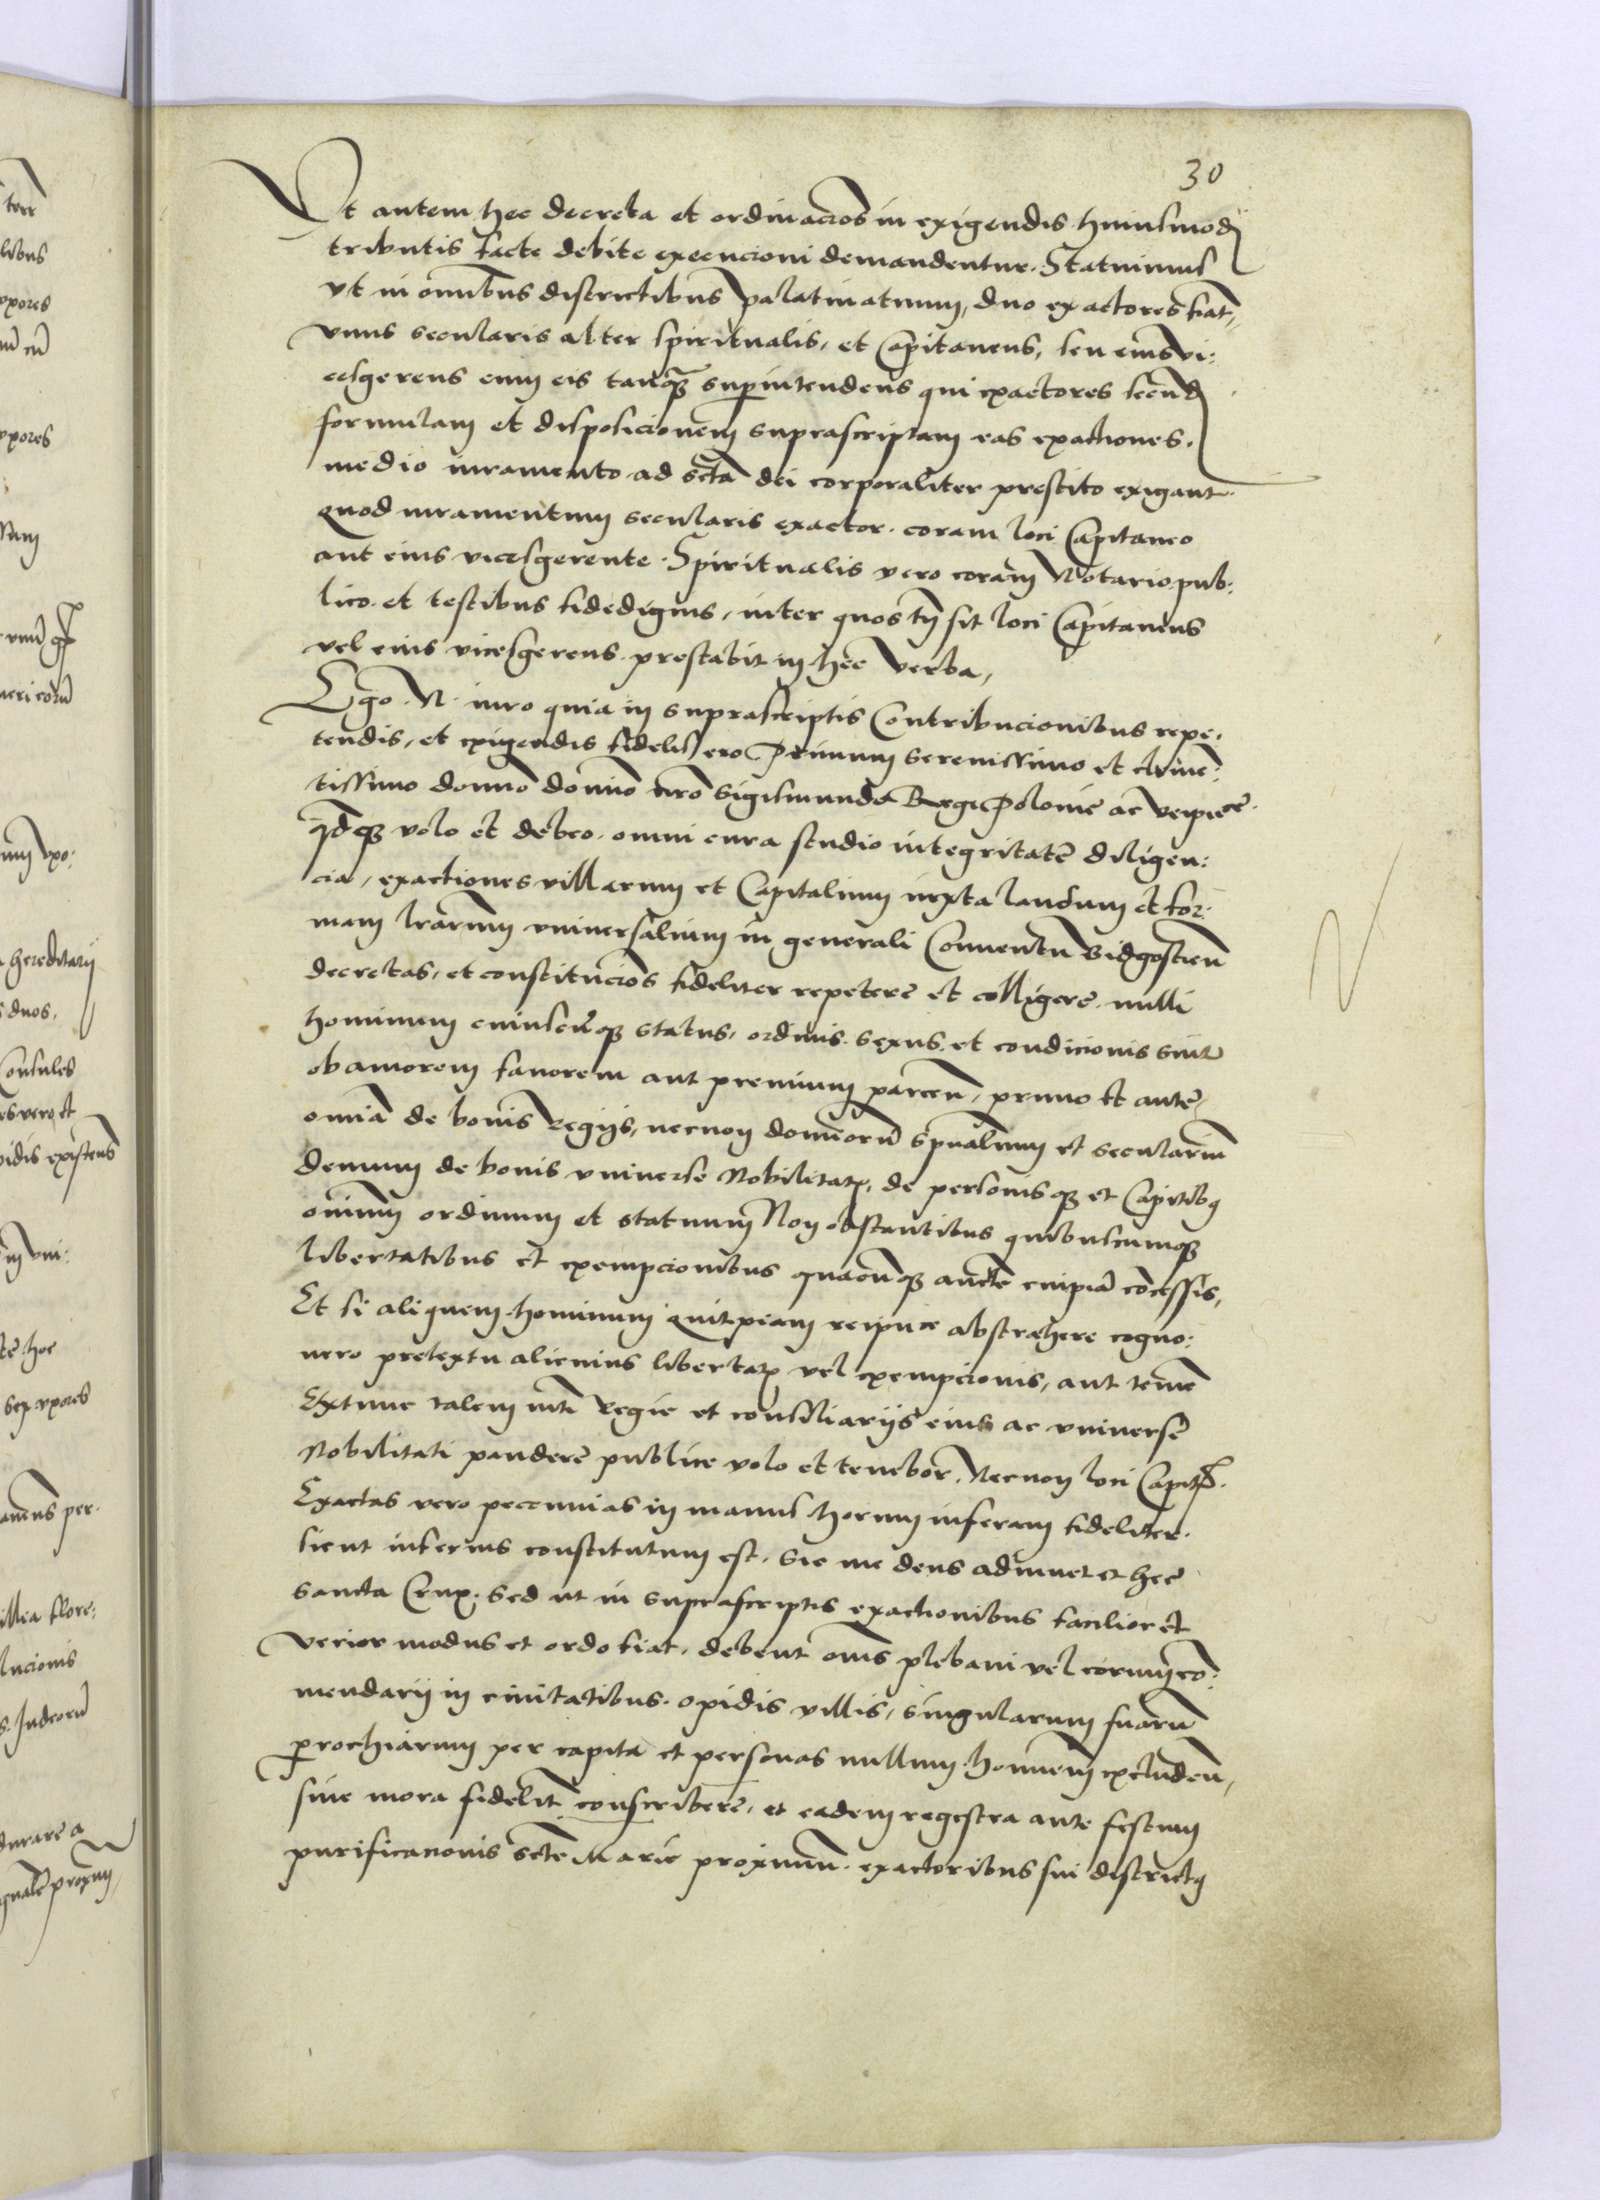 30
Vt autem hec decreta et ordinacios in exigendis huiusmodj
tributis facte debite execucioni demandentur. Statuimus
vt in omnibus districtibus palatinatuum, duo exactores fiat,
vnus secularis alter spiritualis, et Capitaneus, seu eius vi:
cesgerens cum eis tanq̃ supintendens qui exactores secund
formulam et disposicionem suprascriptam eas exactiones.
medio iuramento ad sctã dei corporaliter prestito exigant.
quod iuramentum secularis exactor. coram loci Capitaneo
aut eius vicesgerente. Spiritualis vero coram Notario pub:
lico. et testibus fidedignis, inter quos tñ sit loci Capitaneus
vel eius vicesgerens. prestabit in hec verba,
Ego. N. iuro quia in suprascriptis Contribucionibus repe,
tendis, et exigendis fidelis ero Primum serenissimo et clemē:
tissimo domno domino nrõ Sigismundo Regi Polonie ac reipuce.
idq̃ volo et debeo. omni cura studio integritatē diligen:
cia, exactiones villarum et Capitalium iuxta laudum et for:
mam lrarum vniuersalium in generali Conuentu Bidgostien
decretas, et constitucios fideliter repetere et colligere. nulli
hominum cuiuscuq̃ status, ordinis. sexus. et condicionis sint
ob amorem fauorem aut premium parcen, primo et ante
omia de bonis Regijs, necnon dominorũ spualium et secularium
demum de bonis vniuerse Nobilitatis, de personisq̃ et Capitibq
omium ordinum et statuum Non obstantibus quibuscumq̃
libertatibus et exempcionibus quacunq̃ aucte cuipiã cocessis,
Et si aliquem hominum quitpiam reipuce abstrahere cogno:
uero pretextu alicuius libertatis vel exempcionis, aut temē
Extunc talem mti Regie et consiliarijs eius ac vniuerse
Nobilitati pandere publice volo et tenebor. Necnon loci Capit.
Exactas vero pecunias in manus horum inferam fideliter.
sicut inferius constitutum est, sic me deus adiuuet et hec
sancta Crux. Sed ut in suprascriptis exactionibus facilior et
verior modus et ordo fiat, debent oms plebani vel eorum co:
mendarij in ciuitatibus. opidis villis, singularum suarũ
parochiarum per capita et personas nullum hominem excluden,
sine mora fidelit conscribere, et eadem registra ante festum
purificacionis scte Marie proximum. exactoribus sui districtq